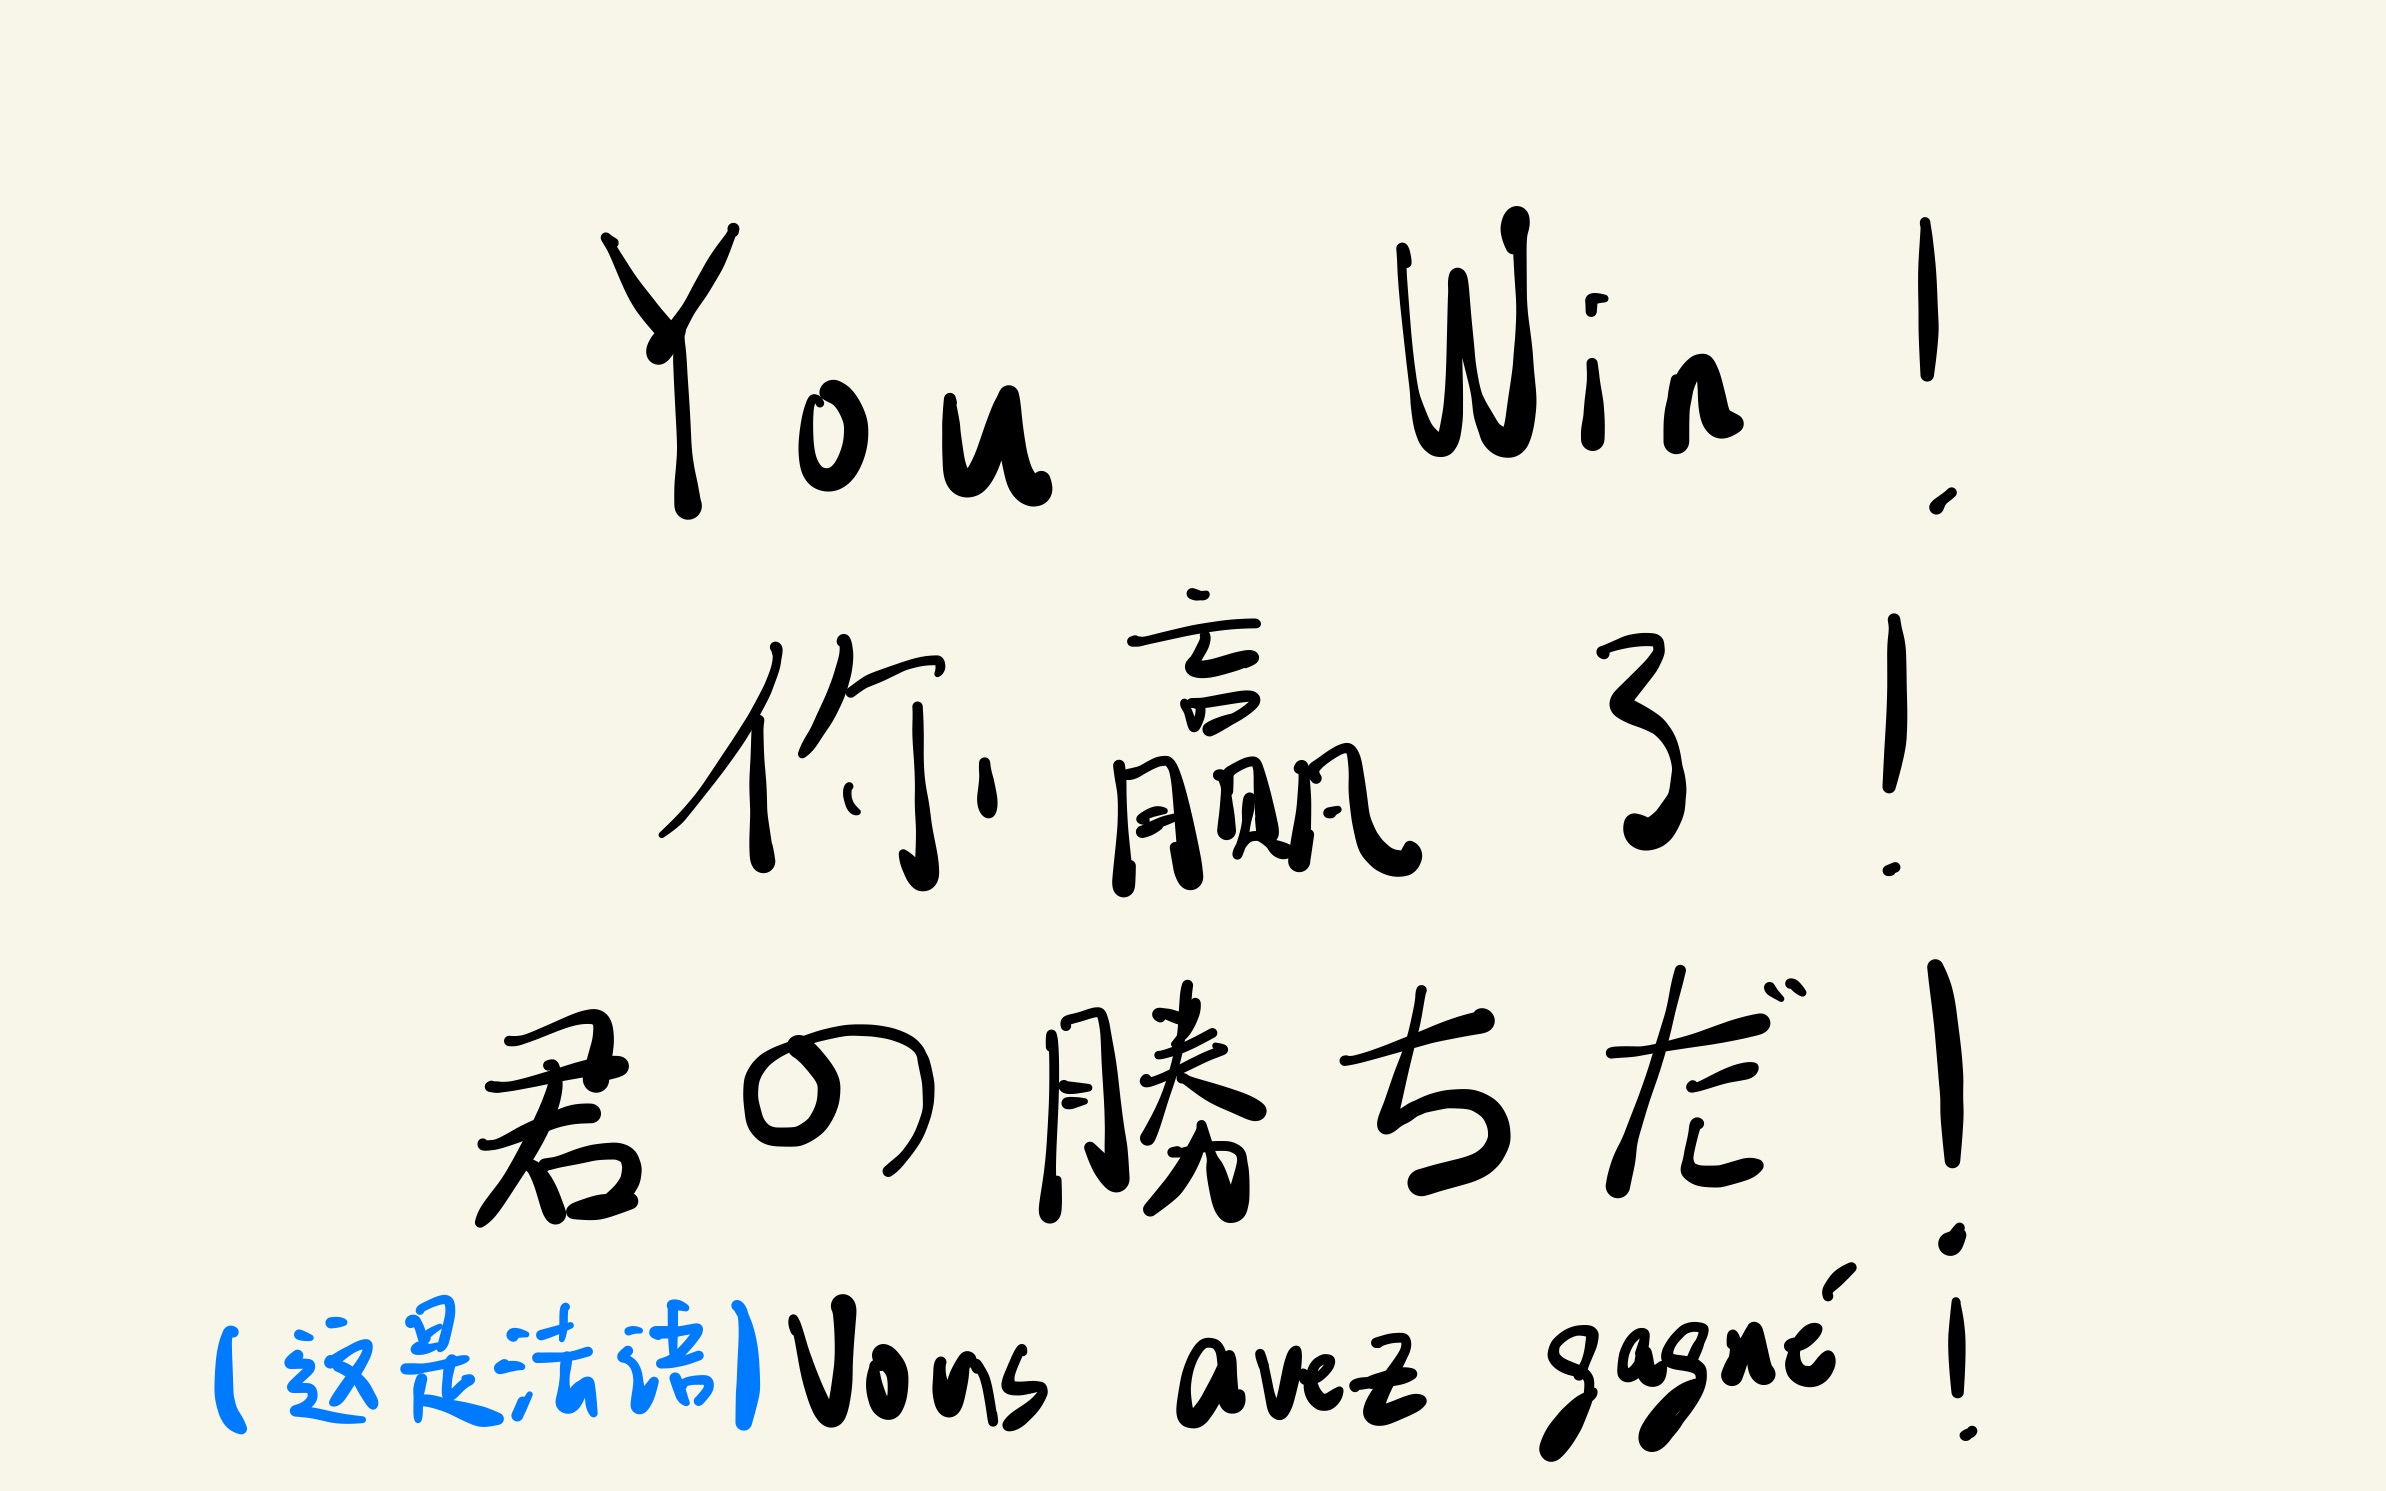 You Win!
你赢了!
君の勝ちだ!
(这是法语)Vous avez gagné!